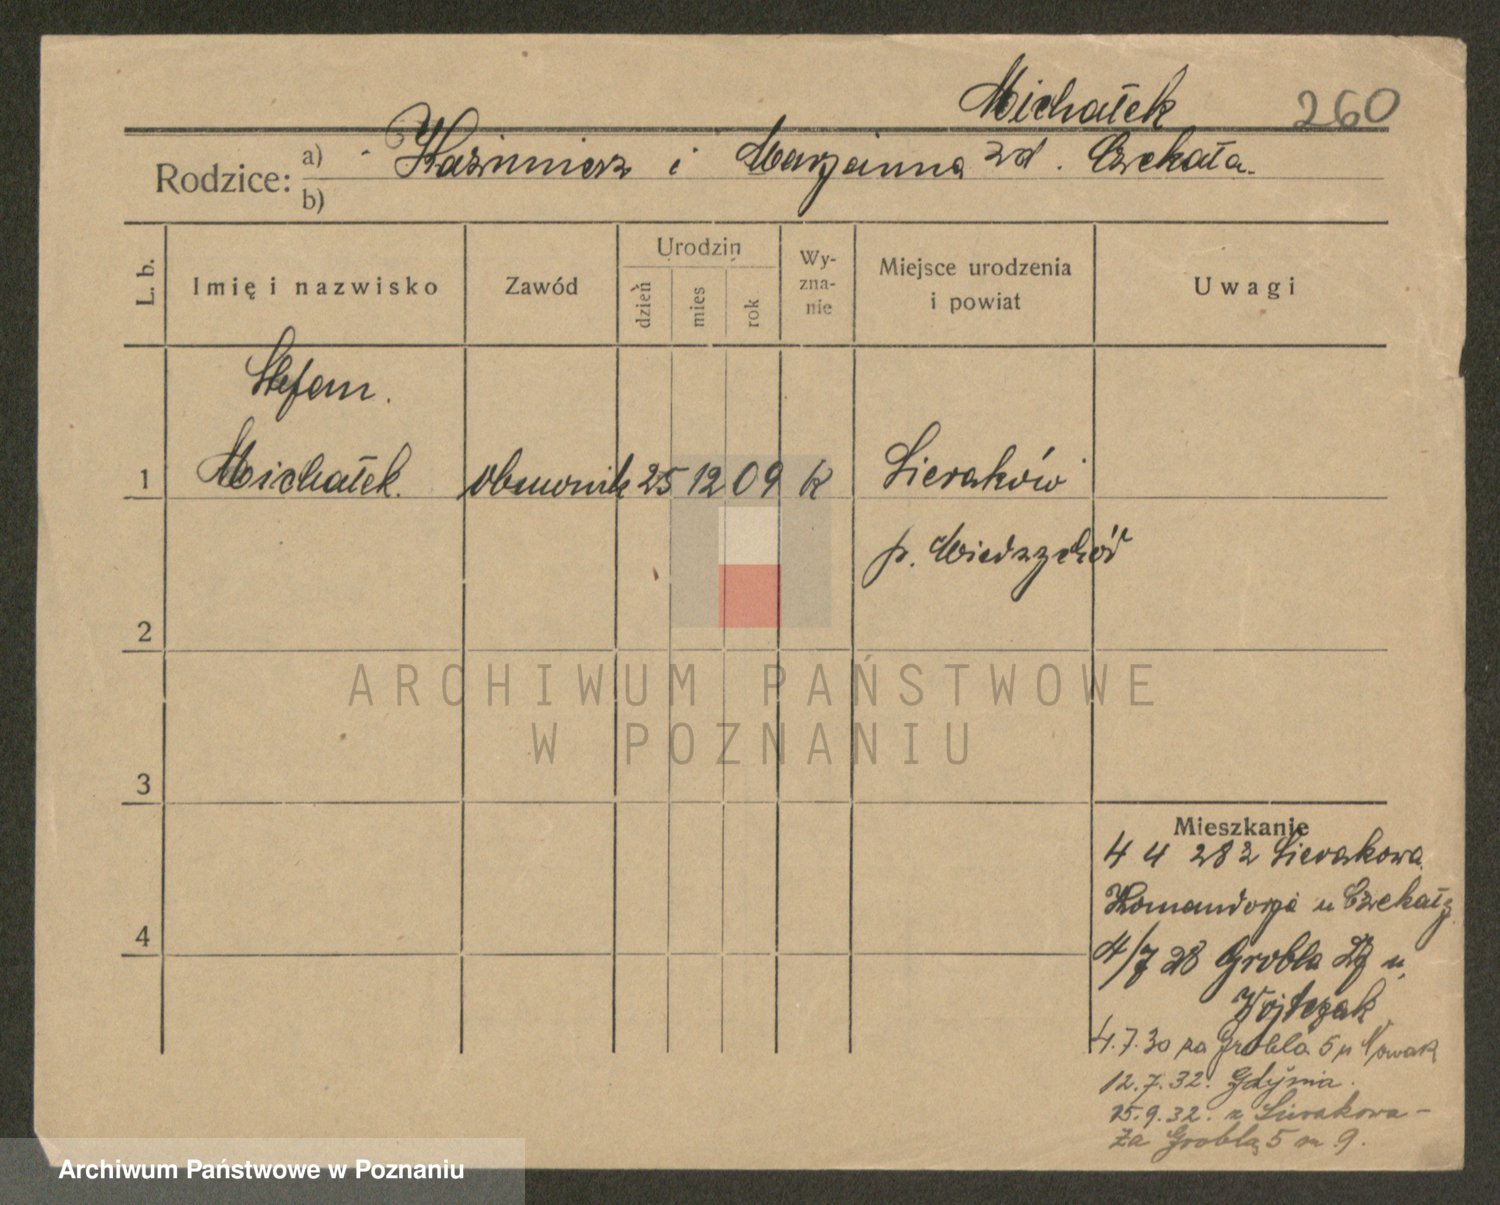 Michałek 260
Rodzice: a) Kazimierz i Marzanna zd. Czekała
b)
L. b. Imię i nazwisko Zawód Urodzin dzień mies rok Wy-zna-nie Miejsce urodzenia i powiat Uwagi
Stefan.
1 Michałek. 25 12 09 k Sieraków
p. Miedzychód
2
ARCHIWUM PAŃSTWOWE
W POZNANIU
3
Mieszkanie
4 4 28 z Sierakowa
4 Komandorja u Czekały
4/7 28 Grobla u.
Wojtczak
4.7.30 za Grobla 5 u Nowak
12.7.32. Gdynia.
25.9.32. z Sierakowa -
Za Groblą 5 m 9.
Archiwum Państwowe w Poznaniu